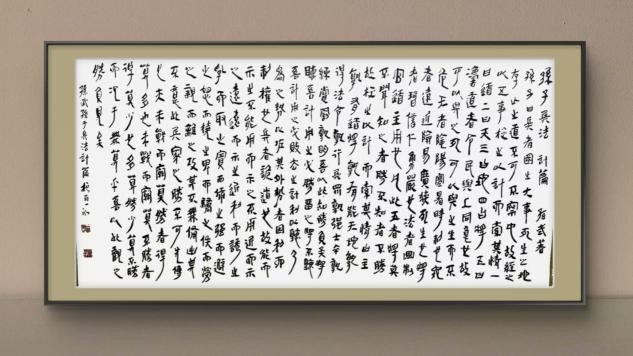 孫子兵法 計篇 孫武著
孫子曰兵者國之大事死生之地
存亡之道不可不察也故經之
以五事校之以計而索其情一
曰道二曰天三曰地四曰將五曰
法道者令民與上同意也故
可以與之死可以與之生而不
危天者陰陽寒暑時制也地
者遠近險易廣狹死生也將
者智信仁勇嚴也法者曲制
官道主用也凡此五者將莫
不聞知之者勝不知者不勝
故校之以計而索其情曰主
孰有道將孰有能天地孰
得法令孰行兵眾孰強士卒孰
練賞罰孰明吾以此知勝負矣將
聽吾計用之必勝留之將不聽
吾計用之必敗去之計利以聽乃
為之勢以佐其外勢者因利而
制權也兵者詭道也故能而
示之不能用而示之不用近而示
之遠遠而示之近利而誘之
亂而取之實而備之強而避
之怒而撓之卑而驕之佚而勞
之親而離之攻其無備出其
不意此兵家之勝不可先傳
也夫未戰而廟算勝者得
算多也未戰而廟算不勝者
得算少也多算勝少算不勝
而況于無算乎吾以此觀之
勝負見矣
孫武孫子兵法計篇